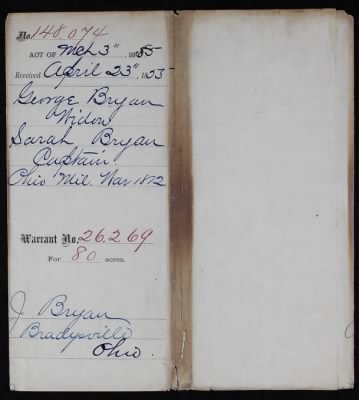 No. 148.074
ACT OF Mch 3", 1855
Received April 23", 1855.
George Bryan
Widow
Sarah Bryan
Captain.
Ohio Mil. War 1812
Warrant No. 26.269
For 80 acres.
J Bryan
Bradysville
Ohio.